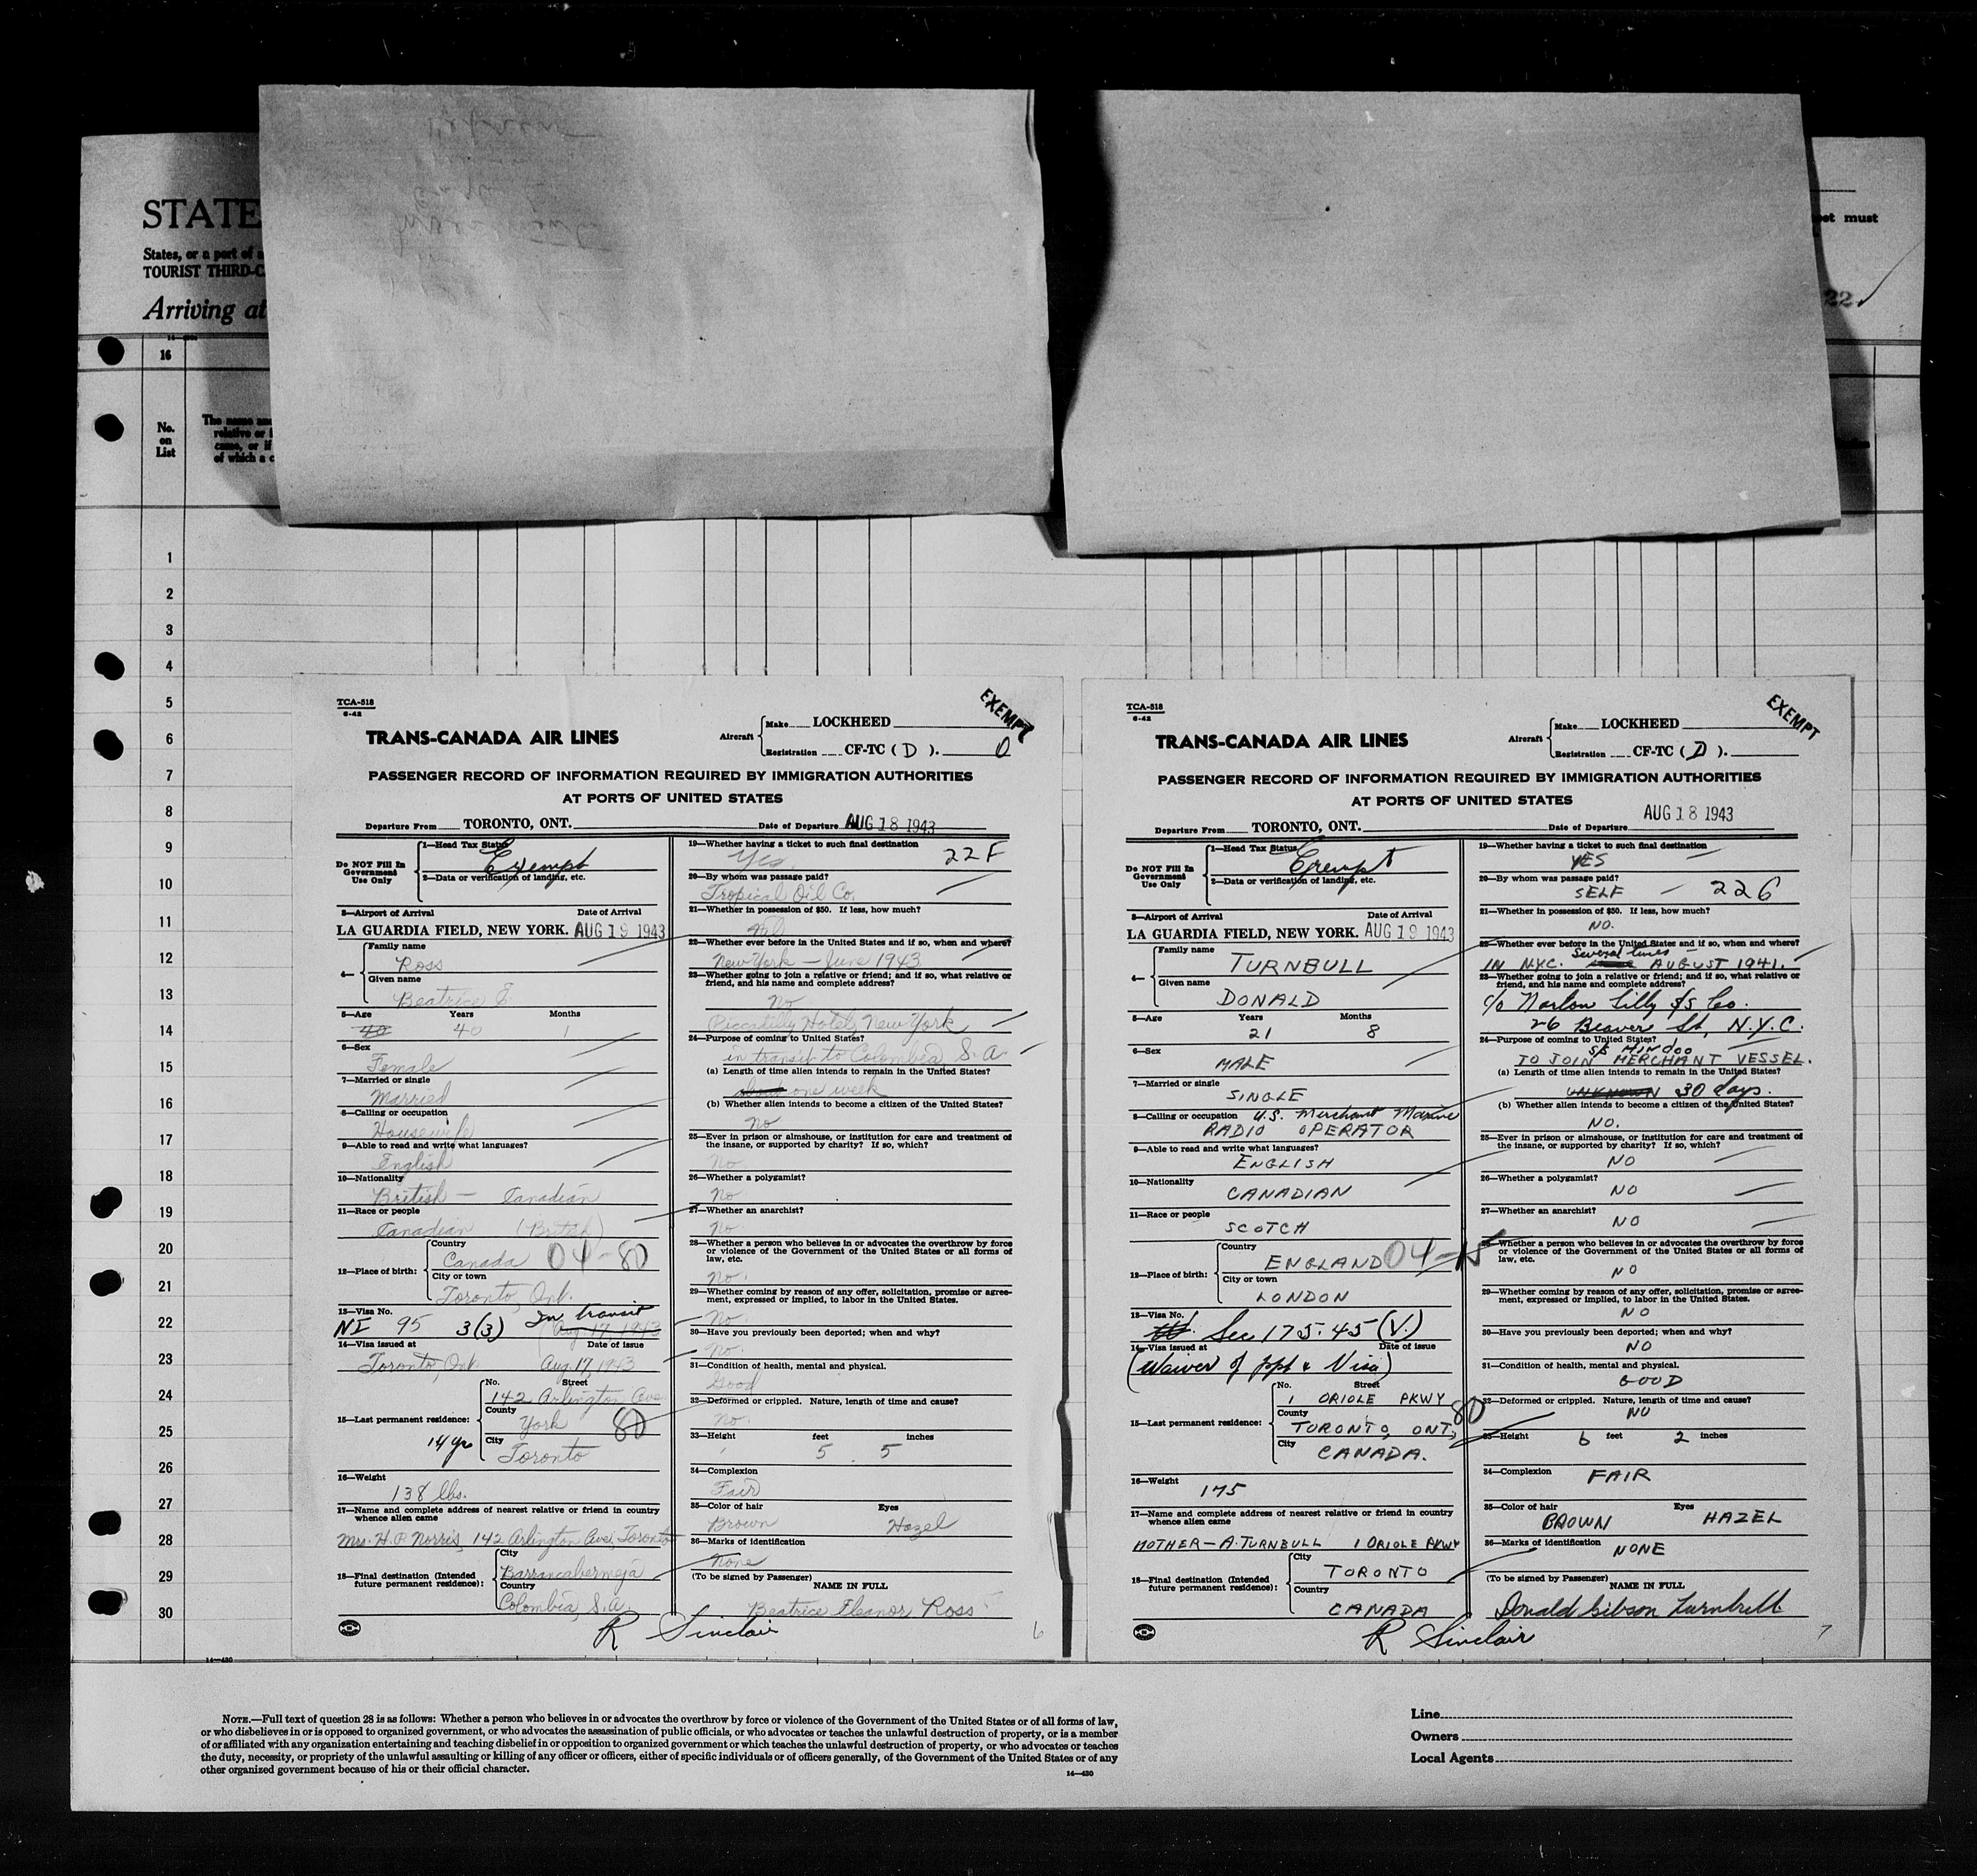 STATE
States, or a port of a
TOURIST THIRD-C
Arriving at
et must
22
16
No.
on
List
The name and
relative or
came, or if
of which a c
1
2
3
4
5
6
7
8
9
10
11
12
13
14
15
16
17
18
19
20
21
22
23
24
25
26
27
28
29
30
TCA-518
6-42
EXEMPT
TRANS-CANADA AIR LINES
Aircraft
Make LOCKHEED
Registration CF-TC ( D ). 0
PASSENGER RECORD OF INFORMATION REQUIRED BY IMMIGRATION AUTHORITIES
AT PORTS OF UNITED STATES
Departure From TORONTO, ONT. Date of Departure AUG 18 1943
Do NOT Fill In
Government
Use Only
1—Head Tax Status
Exempt
2—Data or verification of landing, etc.
3—Airport of Arrival Date of Arrival
LA GUARDIA FIELD, NEW YORK. AUG 19 1943
4—
Family name
Ross
Given name
Beatrice E
5—Age Years Months
40 40 1
6—Sex
Female
7—Married or single
Married
8—Calling or occupation
Housewife
9—Able to read and write what languages?
English
10—Nationality
British — Canadian
11—Race or people
Canadian (British)
12—Place of birth:
Country
Canada 04-80
City or town
Toronto, Ont.
13—Visa No. In transit
NI 95 3(3) Aug. 17, 1943
14—Visa issued at Date of issue
Toronto, Ont. Aug. 17, 1943
15—Last permanent residence:
No. Street
142 Arlington Ave
County
York 80
14 yrs City
Toronto
16—Weight
138 lbs.
17—Name and complete address of nearest relative or friend in country
whence alien came
Mrs. H. P. Norris, 142 Arlington Ave, Toronto
18—Final destination (Intended
future permanent residence):
City
Barrancabermeja
Country
Colombia, S.A.
19—Whether having a ticket to such final destination
Yes 22F
20—By whom was passage paid?
Tropical Oil Co.
21—Whether in possession of $50. If less, how much?
22—Whether ever before in the United States and if so, when and where?
New York — June 1943
23—Whether going to join a relative or friend; and if so, what relative or
friend, and his name and complete address?
No
Piccadilly Hotel, New York
24—Purpose of coming to United States?
in transit to Colombia, S. A.
(a) Length of time alien intends to remain in the United States?
about one week
(b) Whether alien intends to become a citizen of the United States?
No
25—Ever in prison or almshouse, or institution for care and treatment of
the insane, or supported by charity? If so, which?
No
26—Whether a polygamist?
No
27—Whether an anarchist?
No
28—Whether a person who believes in or advocates the overthrow by force
or violence of the Government of the United States or all forms of
law, etc.
No.
29—Whether coming by reason of any offer, solicitation, promise or agree-
ment, expressed or implied, to labor in the United States.
No.
30—Have you previously been deported; when and why?
No.
31—Condition of health, mental and physical.
Good
32—Deformed or crippled. Nature, length of time and cause?
No.
33—Height feet inches
5 5
34—Complexion
Fair
35—Color of hair Eyes
Brown Hazel
36—Marks of identification
None
(To be signed by Passenger)
NAME IN FULL
Beatrice Eleanor Ross
R Sinclair
6
TCA-518
6-42
EXEMPT
TRANS-CANADA AIR LINES
Aircraft
Make LOCKHEED
Registration CF-TC ( D ).
PASSENGER RECORD OF INFORMATION REQUIRED BY IMMIGRATION AUTHORITIES
AT PORTS OF UNITED STATES
AUG 18 1943
Departure From TORONTO, ONT. Date of Departure
Do NOT Fill In
Government
Use Only
1—Head Tax Status
Exempt
2—Data or verification of landing, etc.
3—Airport of Arrival Date of Arrival
LA GUARDIA FIELD, NEW YORK. AUG 19 1943
4—
Family name
TURNBULL
Given name
DONALD
5—Age Years Months
21 8
6—Sex
MALE
7—Married or single
SINGLE
8—Calling or occupation U.S. Merchant Marine
RADIO OPERATOR
9—Able to read and write what languages?
ENGLISH
10—Nationality
CANADIAN
11—Race or people
SCOTCH
12—Place of birth:
Country
ENGLAND 04-15
City or town
LONDON
13—Visa No.
Sec 175.45 (V.)
14—Visa issued at Date of issue
(Waiver of ppt & Visa)
15—Last permanent residence:
No. Street
1 ORIOLE PKWY
County 80
TORONTO, ONT,
City
CANADA.
16—Weight
175
17—Name and complete address of nearest relative or friend in country
whence alien came
MOTHER—A. TURNBULL 1 ORIOLE PKWY
18—Final destination (Intended
future permanent residence):
City
TORONTO
Country
CANADA
19—Whether having a ticket to such final destination
YES
20—By whom was passage paid?
SELF — 22G
21—Whether in possession of $50. If less, how much?
NO.
22—Whether ever before in the United States and if so, when and where?
Several times
IN NYC. AUGUST 1941.
23—Whether going to join a relative or friend; and if so, what relative or
friend, and his name and complete address?
c/o Norton Lilly S/S Co.
26 Beaver St, N.Y.C.
24—Purpose of coming to United States?
S/S Mindoo
TO JOIN MERCHANT VESSEL.
(a) Length of time alien intends to remain in the United States?
UNKNOWN 30 days.
(b) Whether alien intends to become a citizen of the United States?
NO.
25—Ever in prison or almshouse, or institution for care and treatment of
the insane, or supported by charity? If so, which?
NO
26—Whether a polygamist?
NO
27—Whether an anarchist?
NO
28—Whether a person who believes in or advocates the overthrow by force
or violence of the Government of the United States or all forms of
law, etc.
NO
29—Whether coming by reason of any offer, solicitation, promise or agree-
ment, expressed or implied, to labor in the United States.
NO
30—Have you previously been deported; when and why?
NO
31—Condition of health, mental and physical.
GOOD
32—Deformed or crippled. Nature, length of time and cause?
NO
33—Height 6 feet 2 inches
34—Complexion
FAIR
35—Color of hair Eyes
BROWN HAZEL
36—Marks of identification
NONE
(To be signed by Passenger)
NAME IN FULL
Donald Gibson Turnbull
R Sinclair
7
14—430
NOTE.—Full text of question 28 is as follows: Whether a person who believes in or advocates the overthrow by force or violence of the Government of the United States or of all forms of law,
or who disbelieves in or is opposed to organized government, or who advocates the assassination of public officials, or who advocates or teaches the unlawful destruction of property, or is a member
of or affiliated with any organization entertaining and teaching disbelief in or opposition to organized government or which teaches the unlawful destruction of property, or who advocates or teaches
the duty, necessity, or propriety of the unlawful assaulting or killing of any officer or officers, either of specific individuals or of officers generally, of the Government of the United States or of any
other organized government because of his or their official character.
14—430
Line
Owners
Local Agents